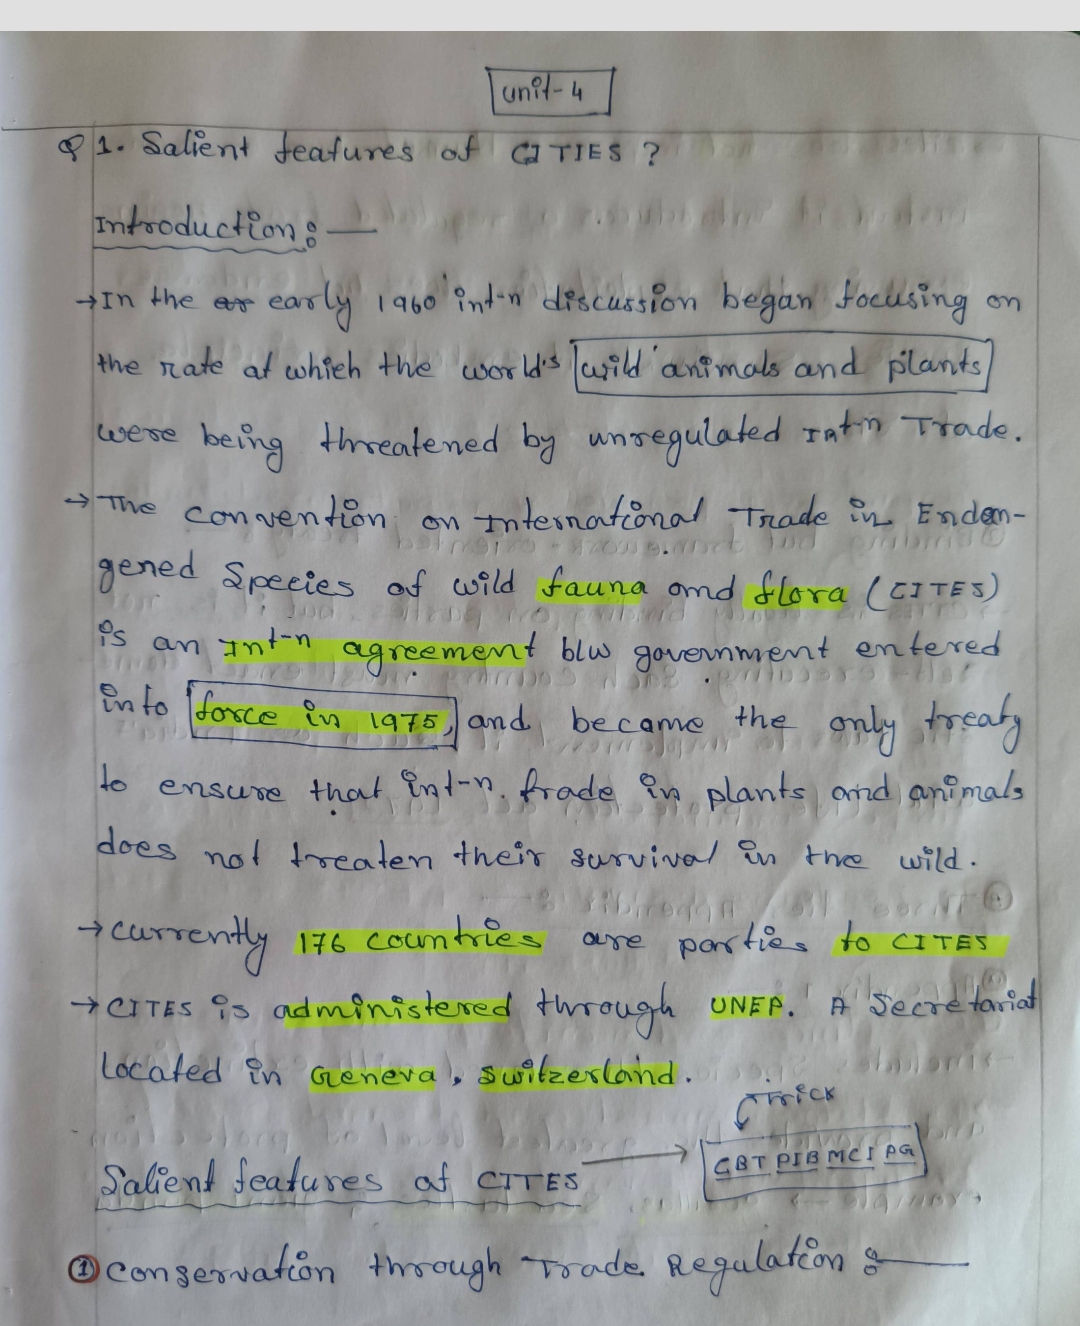 Unit-4
Q 1. Salient features of CITIES ?
Introduction :—
→ In the early 1960 int-n discussion began focusing on
the rate at which the world's wild animals and plants
were being threatened by unregulated Int-n Trade.
→ The convention on International Trade in Endan-
gered Species of wild fauna and flora (CITES)
is an Int-n agreement b/w government entered
into force in 1975, and became the only treaty
to ensure that int-n. trade in plants and animals
does not treaten their survival in the wild.
→ Currently 176 countries are parties to CITES
→ CITES is administered through UNEP. A Secretariat
located in Geneva, Switzerland.
Trick
Salient features of CITES → CBT PIB MCI PG
① Conservation through Trade Regulation :—